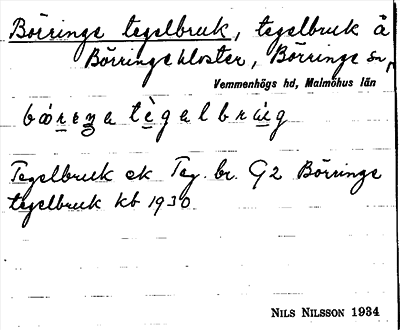 Börringe tegelbruk, tegelbruk å
Börringekloster, Börringe sn,
Vemmenhögs hd, Malmöhus län
tègelbrug
Tegelbruk ek Teg. br. G2 Börringe
tegelbruk kb 1930.
NILS NILSSON 1934